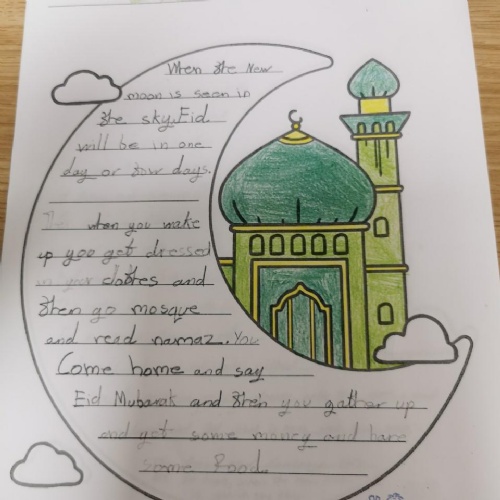 When the New
moon is seen in
the sky. Eid
will be in one
day or tow days.
when you wake
up you get dressed
in your clothes and
then go mosque
and read namaz. You
Come home and say
Eid Mubarak and then you gather up
and get some money and have
some food.